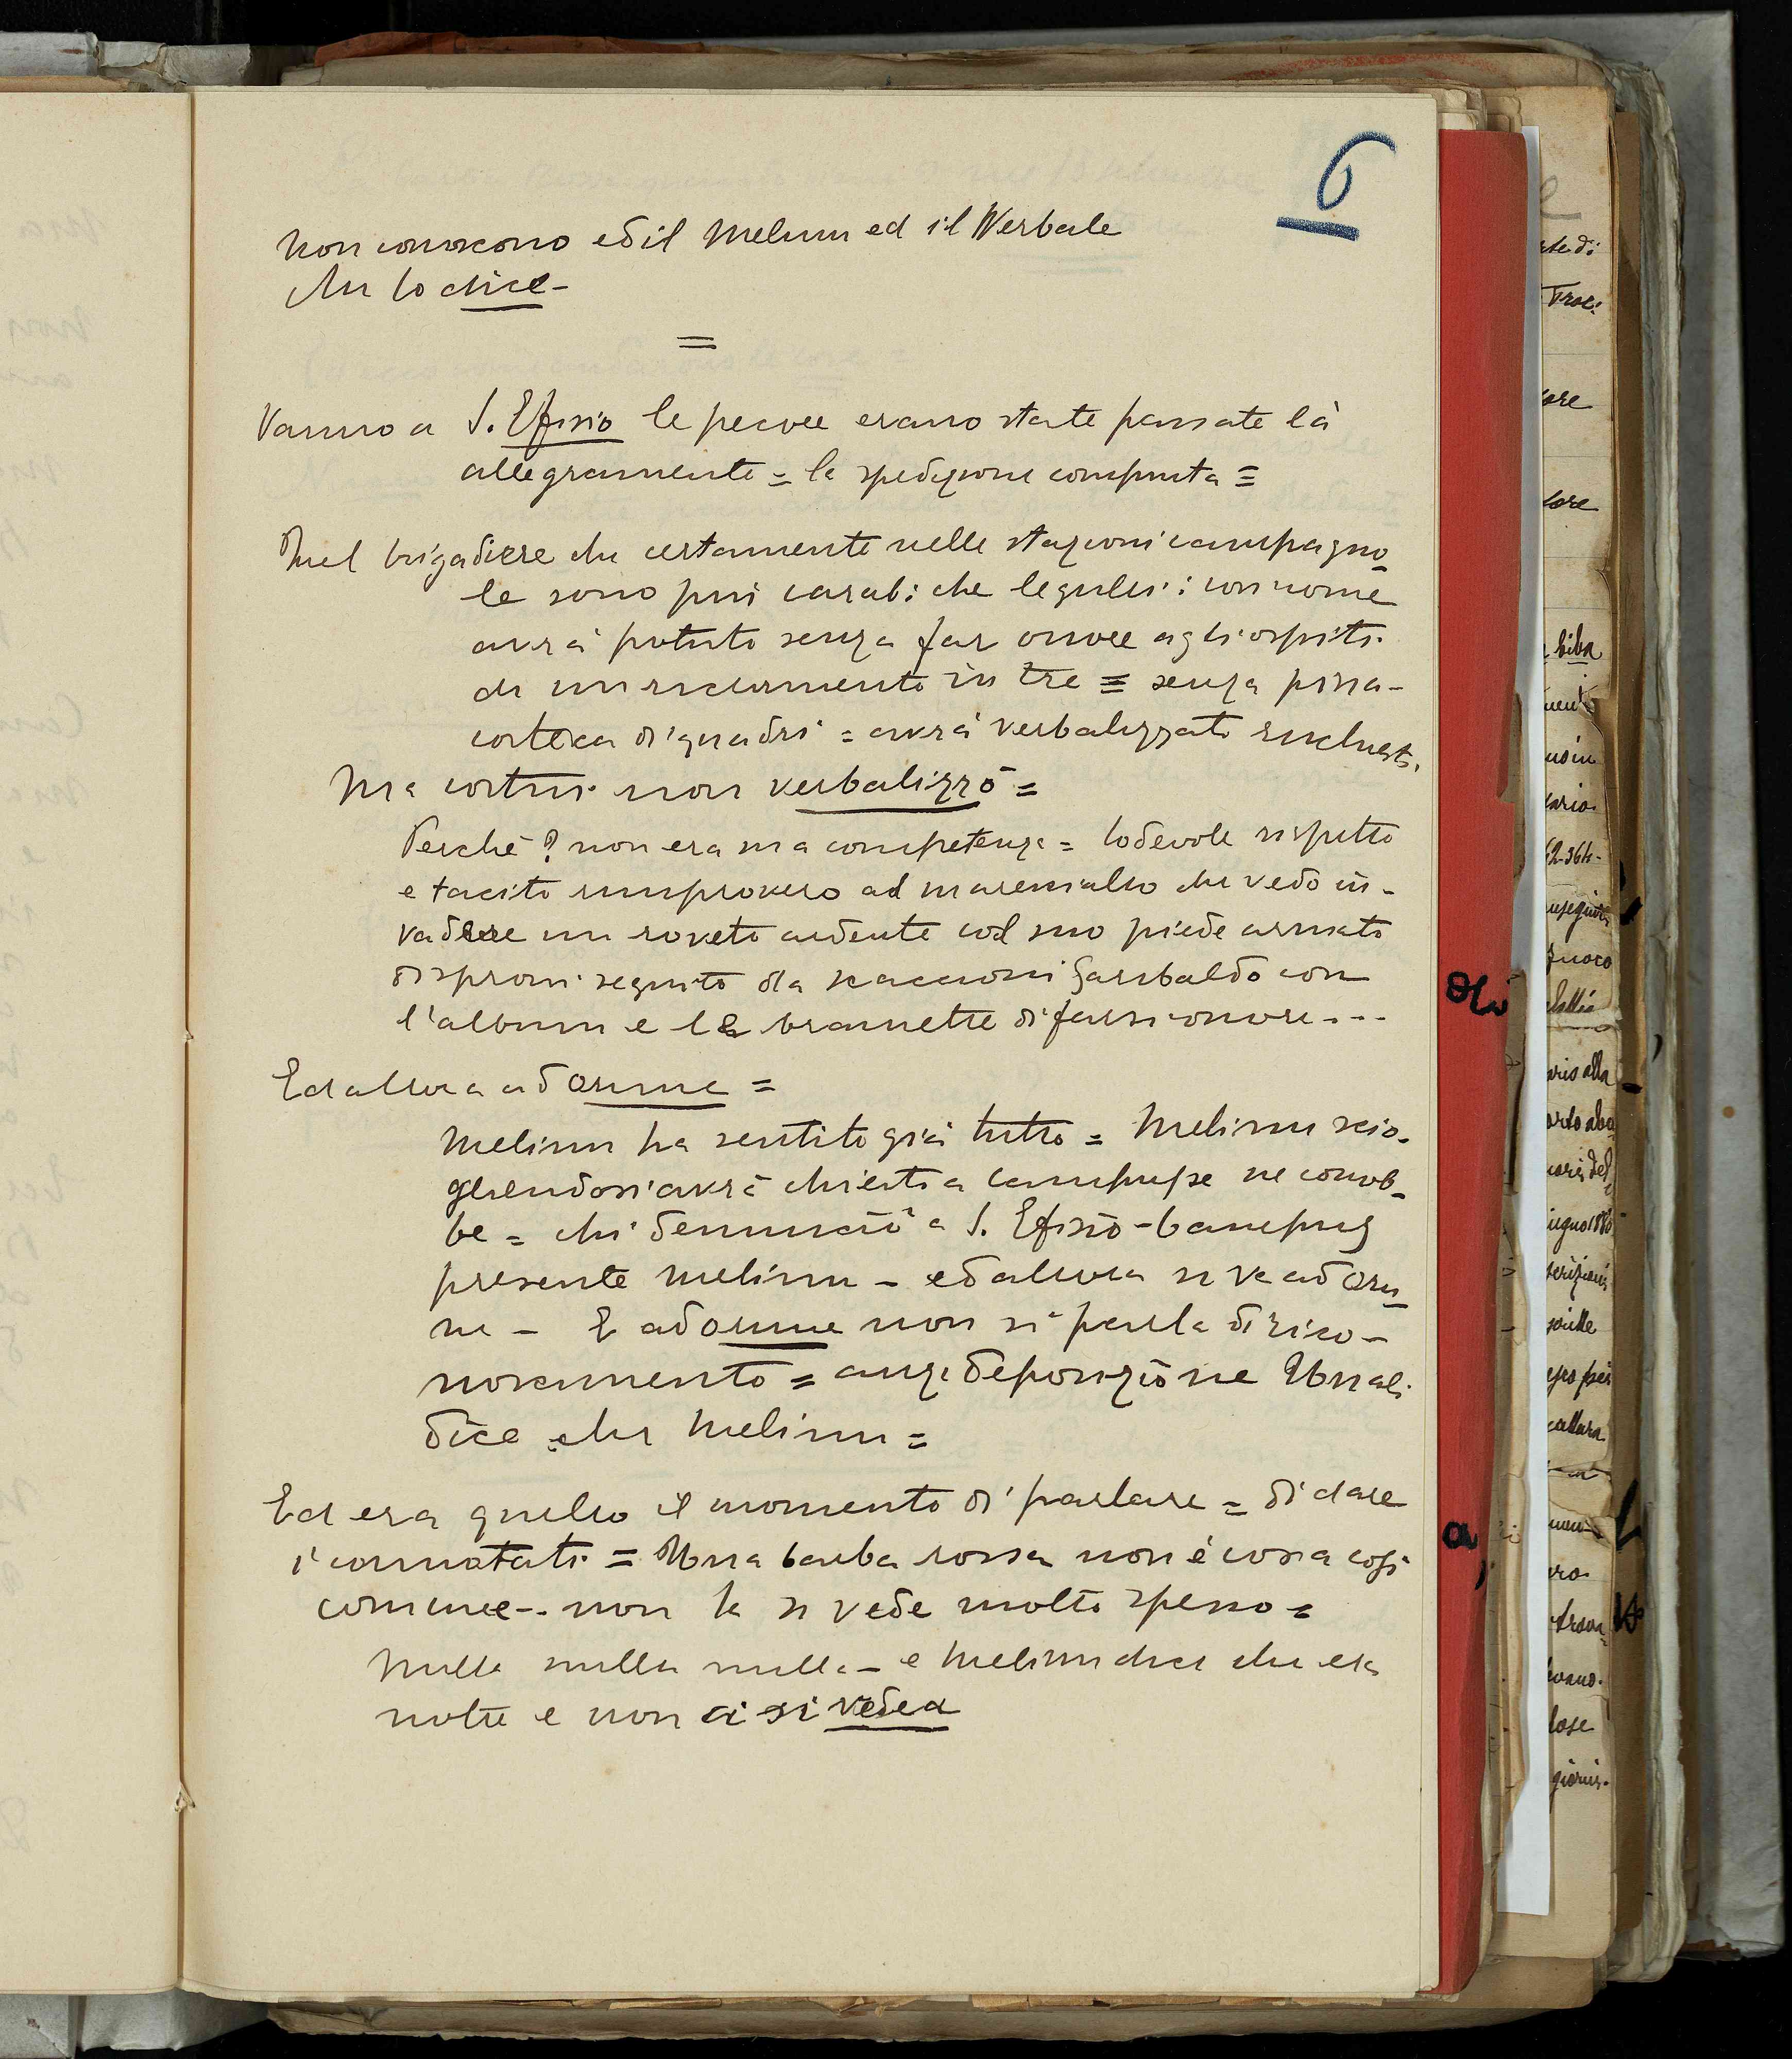 6
non conoscono ed il Melinu ed il Verbale
che lo dice -
=
Vanno a S. Efisio le pecore erano state passate là
allegramente = la spedizione compiuta =
Quel brigadiere che certamente nelle stazioni campagno_
le sono più carab: che legulei: con nome
avrà potuto senza far onore agli ospiti
di un riconoscimento in tre = senza pina-
coteca di quadri = avrà verbalizzato
Ma costui non verbalizzò =
Perché? non era sua competenza = lodevole rispetto
e tacito rimprovero al maresciallo che vedo in-
vadere un roveto ardente col suo piede armato
di sproni seguito da Garibaldo con
l'album e la di farsi onore ...
Ed allora ad Orune =
Melinu ha sentito già tutto = Melinu scio-
gliendosi avrà chiesto a ne conob-
be = chi denunciò a S. Efisio -
presente Melinu - ed allora si va ad Oru_
ne - E ad Orune non si parla di rico-
noscimento = anzi deposizione
dice che Melinu =
Ed era quello il momento di parlare = di dare
i connotati = Una barba rossa non è cosa così
comune - non la si vede molto spesso =
Nulla nulla nulla - e Melinu dice che era
notte e non ci si vedea
ste di
Troc:
core
core
biba
mario
nseguito
fuoco
ario alla
orto abo
del
iugno
callara
lose
giorni.